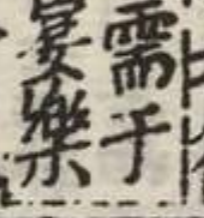 需于
宴樂